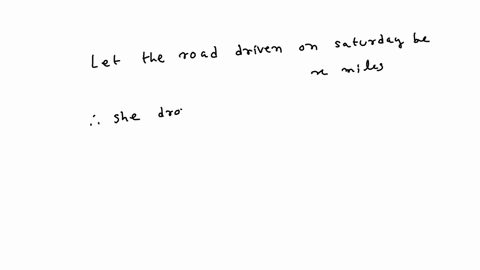 Let the road driven on saturday be
x miles
∴ she dro